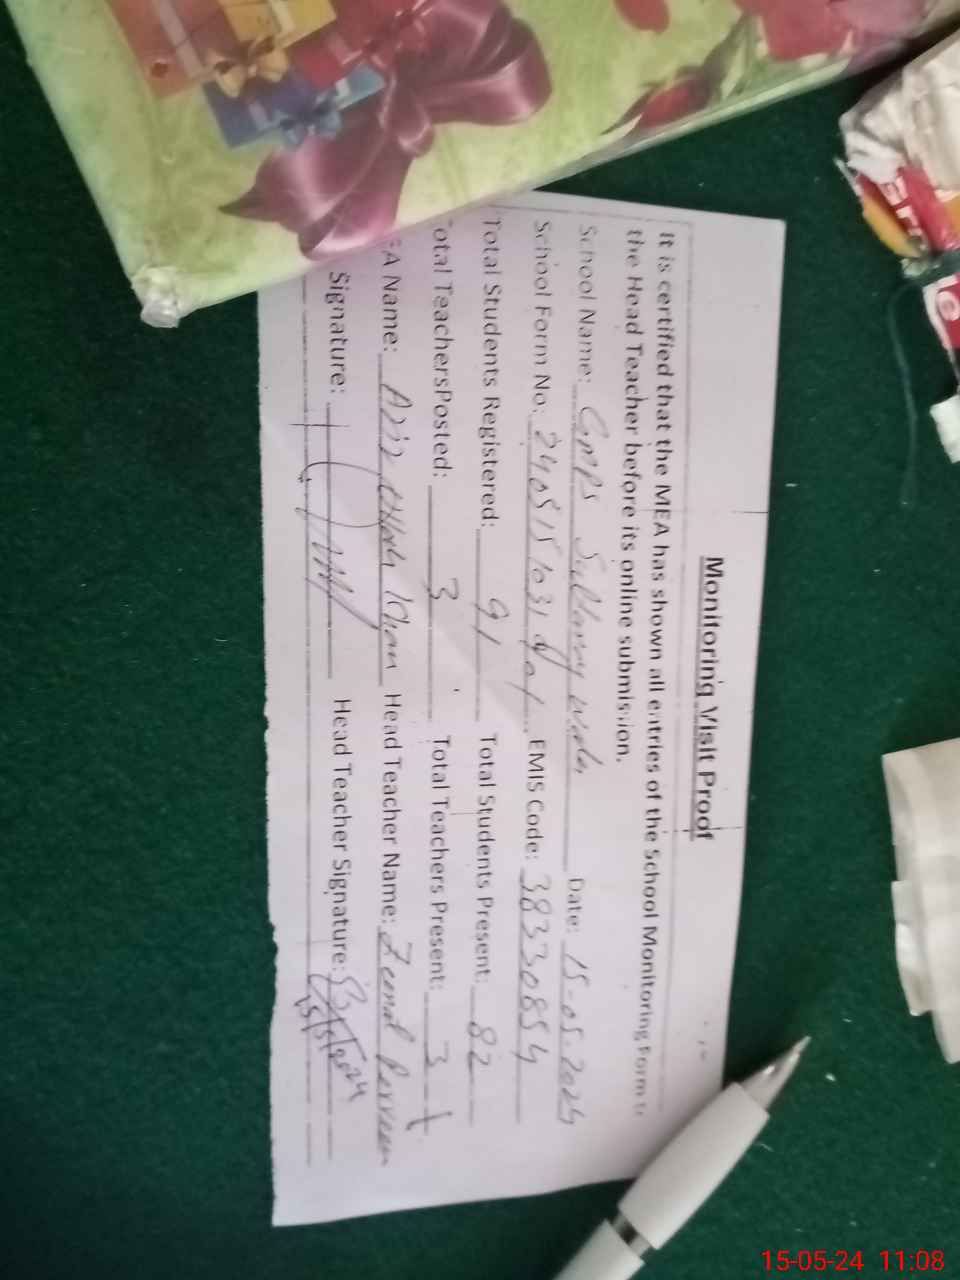 Monitoring Visit Proof
It is certified that the MEA has shown all entries of the School Monitoring Form to
the Head Teacher before its online submission.
School Name: GMPS Date: 15-05-2024
School Form No: EMIS Code: 38330854
Total Students Registered: 91 Total Students Present: 82
Total TeachersPosted: 3 Total Teachers Present: 3
Name: Khan Head Teacher Name: Perveen
Signature: Head Teacher Signature:
15/5/2024
15-05-24 11:08